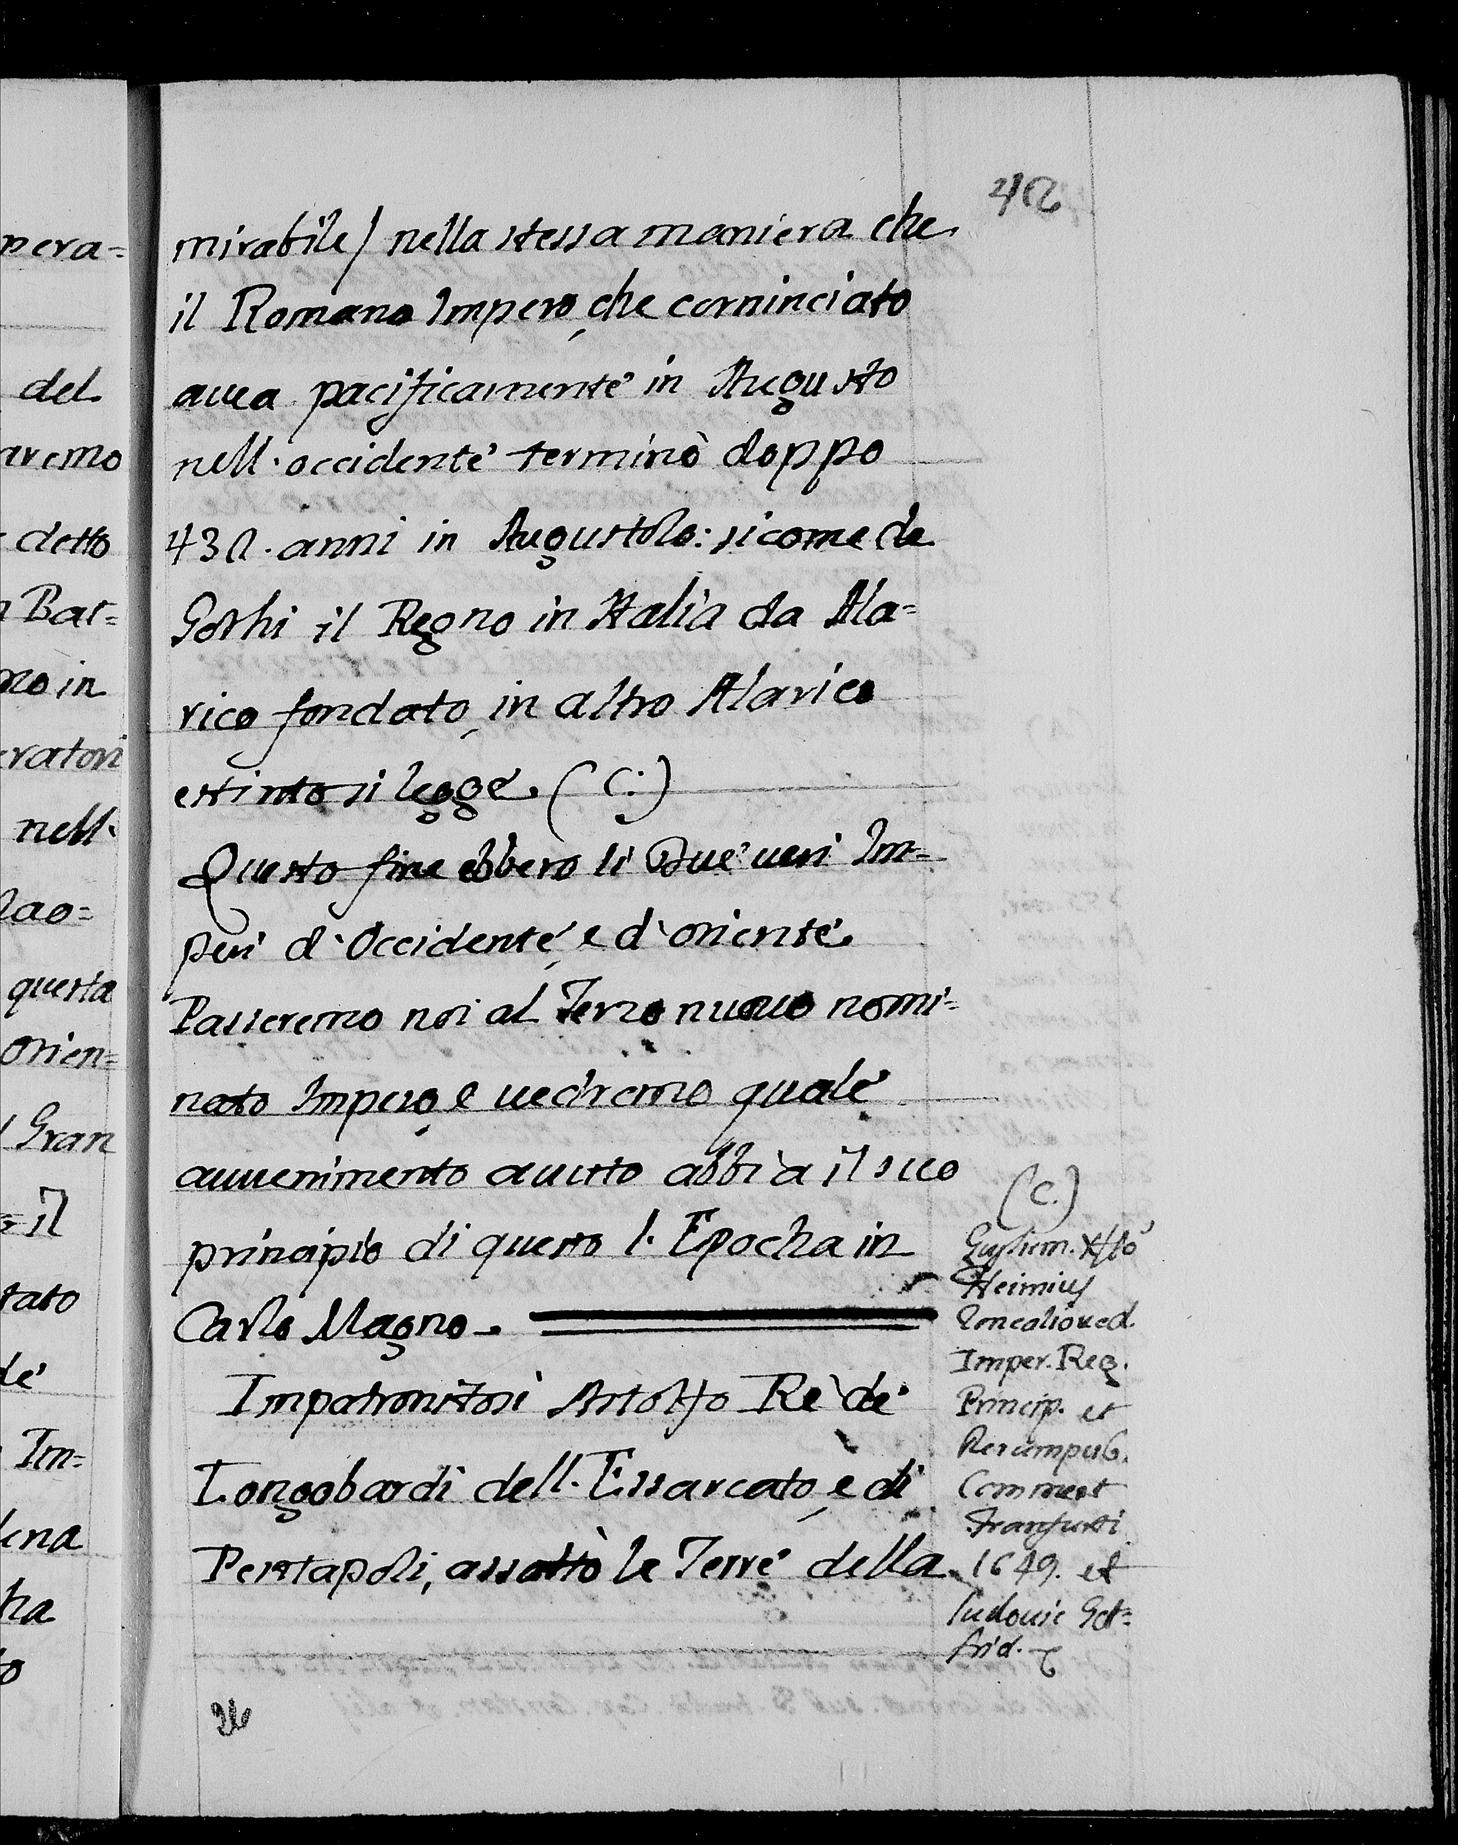 mirabile) nella stessa maniera che
il Romano Impero, che corninciato
avea pacificamente in Augusto
nell' occidente terminò doppo
430. anni in Augustolo: sicome de
Gothi il Regno in Italia da Ala=
rico fondato, in altro Alarico
estinto si legge. (C:)
Questo fine ebbero li Due veri Im=
peri d'Occidente, e d'oriente
Passeremo noi al Terzo nuovo nomi=
nato Impero, e vedremo quale
avvenimento avuto abbia il suo
principio di questo l. Epocha in
Carlo Magno.
Impatronitosi Astolfo Rè de
Longobardi dell. Essarcato, e di
Pentapoli, assaltò le Terre della
(C.)
Guglielm. Xfſo
Heimius
ed.
Imper. Reg.
Princip. et
Rerumpub.
Comment
Franfurti
1649. et
Ludovic Got=
frid.
pera=
del
aremo
detto
Bat=
no in
eratori
nell'
lao=
questa
Orien=
Gran
= il
tato
de
Im=
dena
ha
to